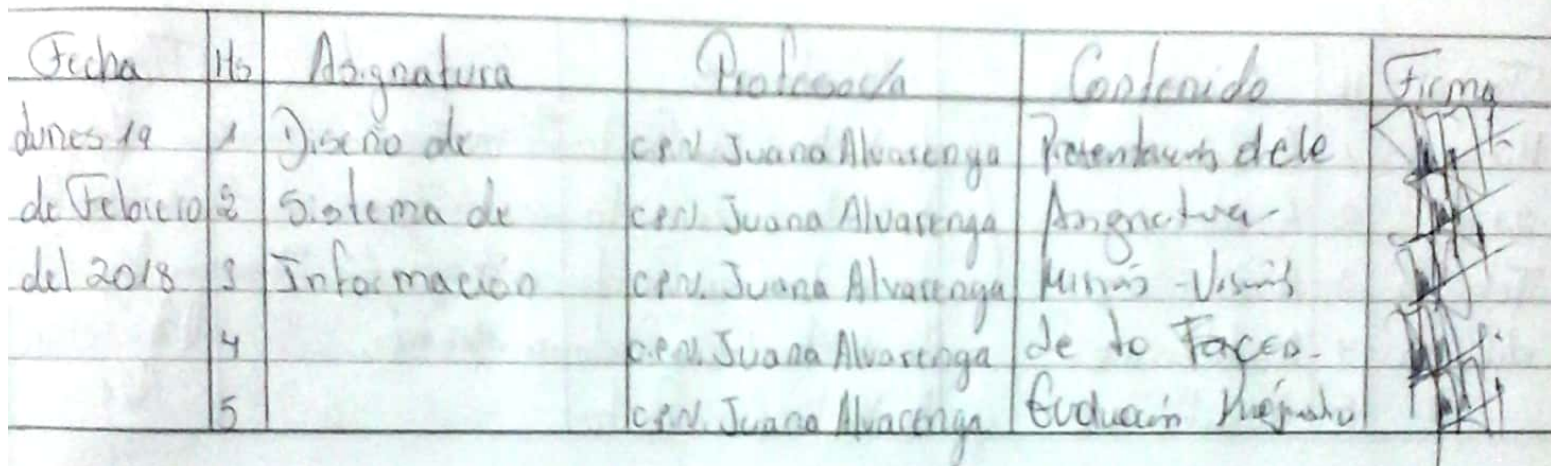 Fecha Hs Asignatura Profesor/a Contenido Firma
Lunes 19 1 Diseño de C.P.N. Juana Alvarenga Presentación de la
de Febrero 2 Sistema de C.P.N. Juana Alvarenga Asignatura-
del 2018 3 Información C.P.N. Juana Alvarenga Misión - Visión
4 C.P.N. Juana Alvarenga de la Facea-
5 C.P.N. Juana Alvarenga Evaluación